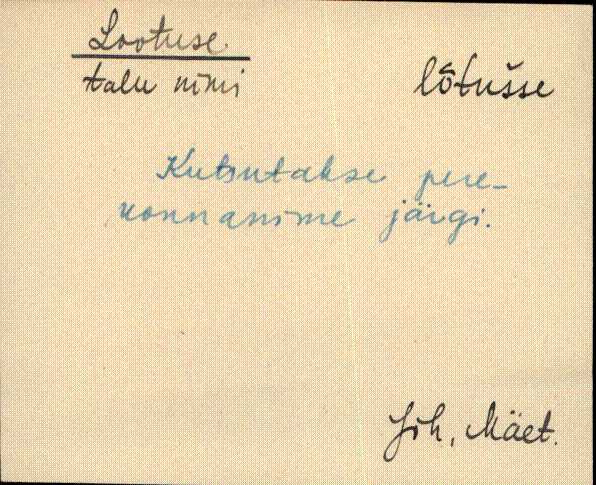 Lootuse
talu nimi lõtušse
Kutsutakse pere-
konnanime järgi.
Joh, Mäet.